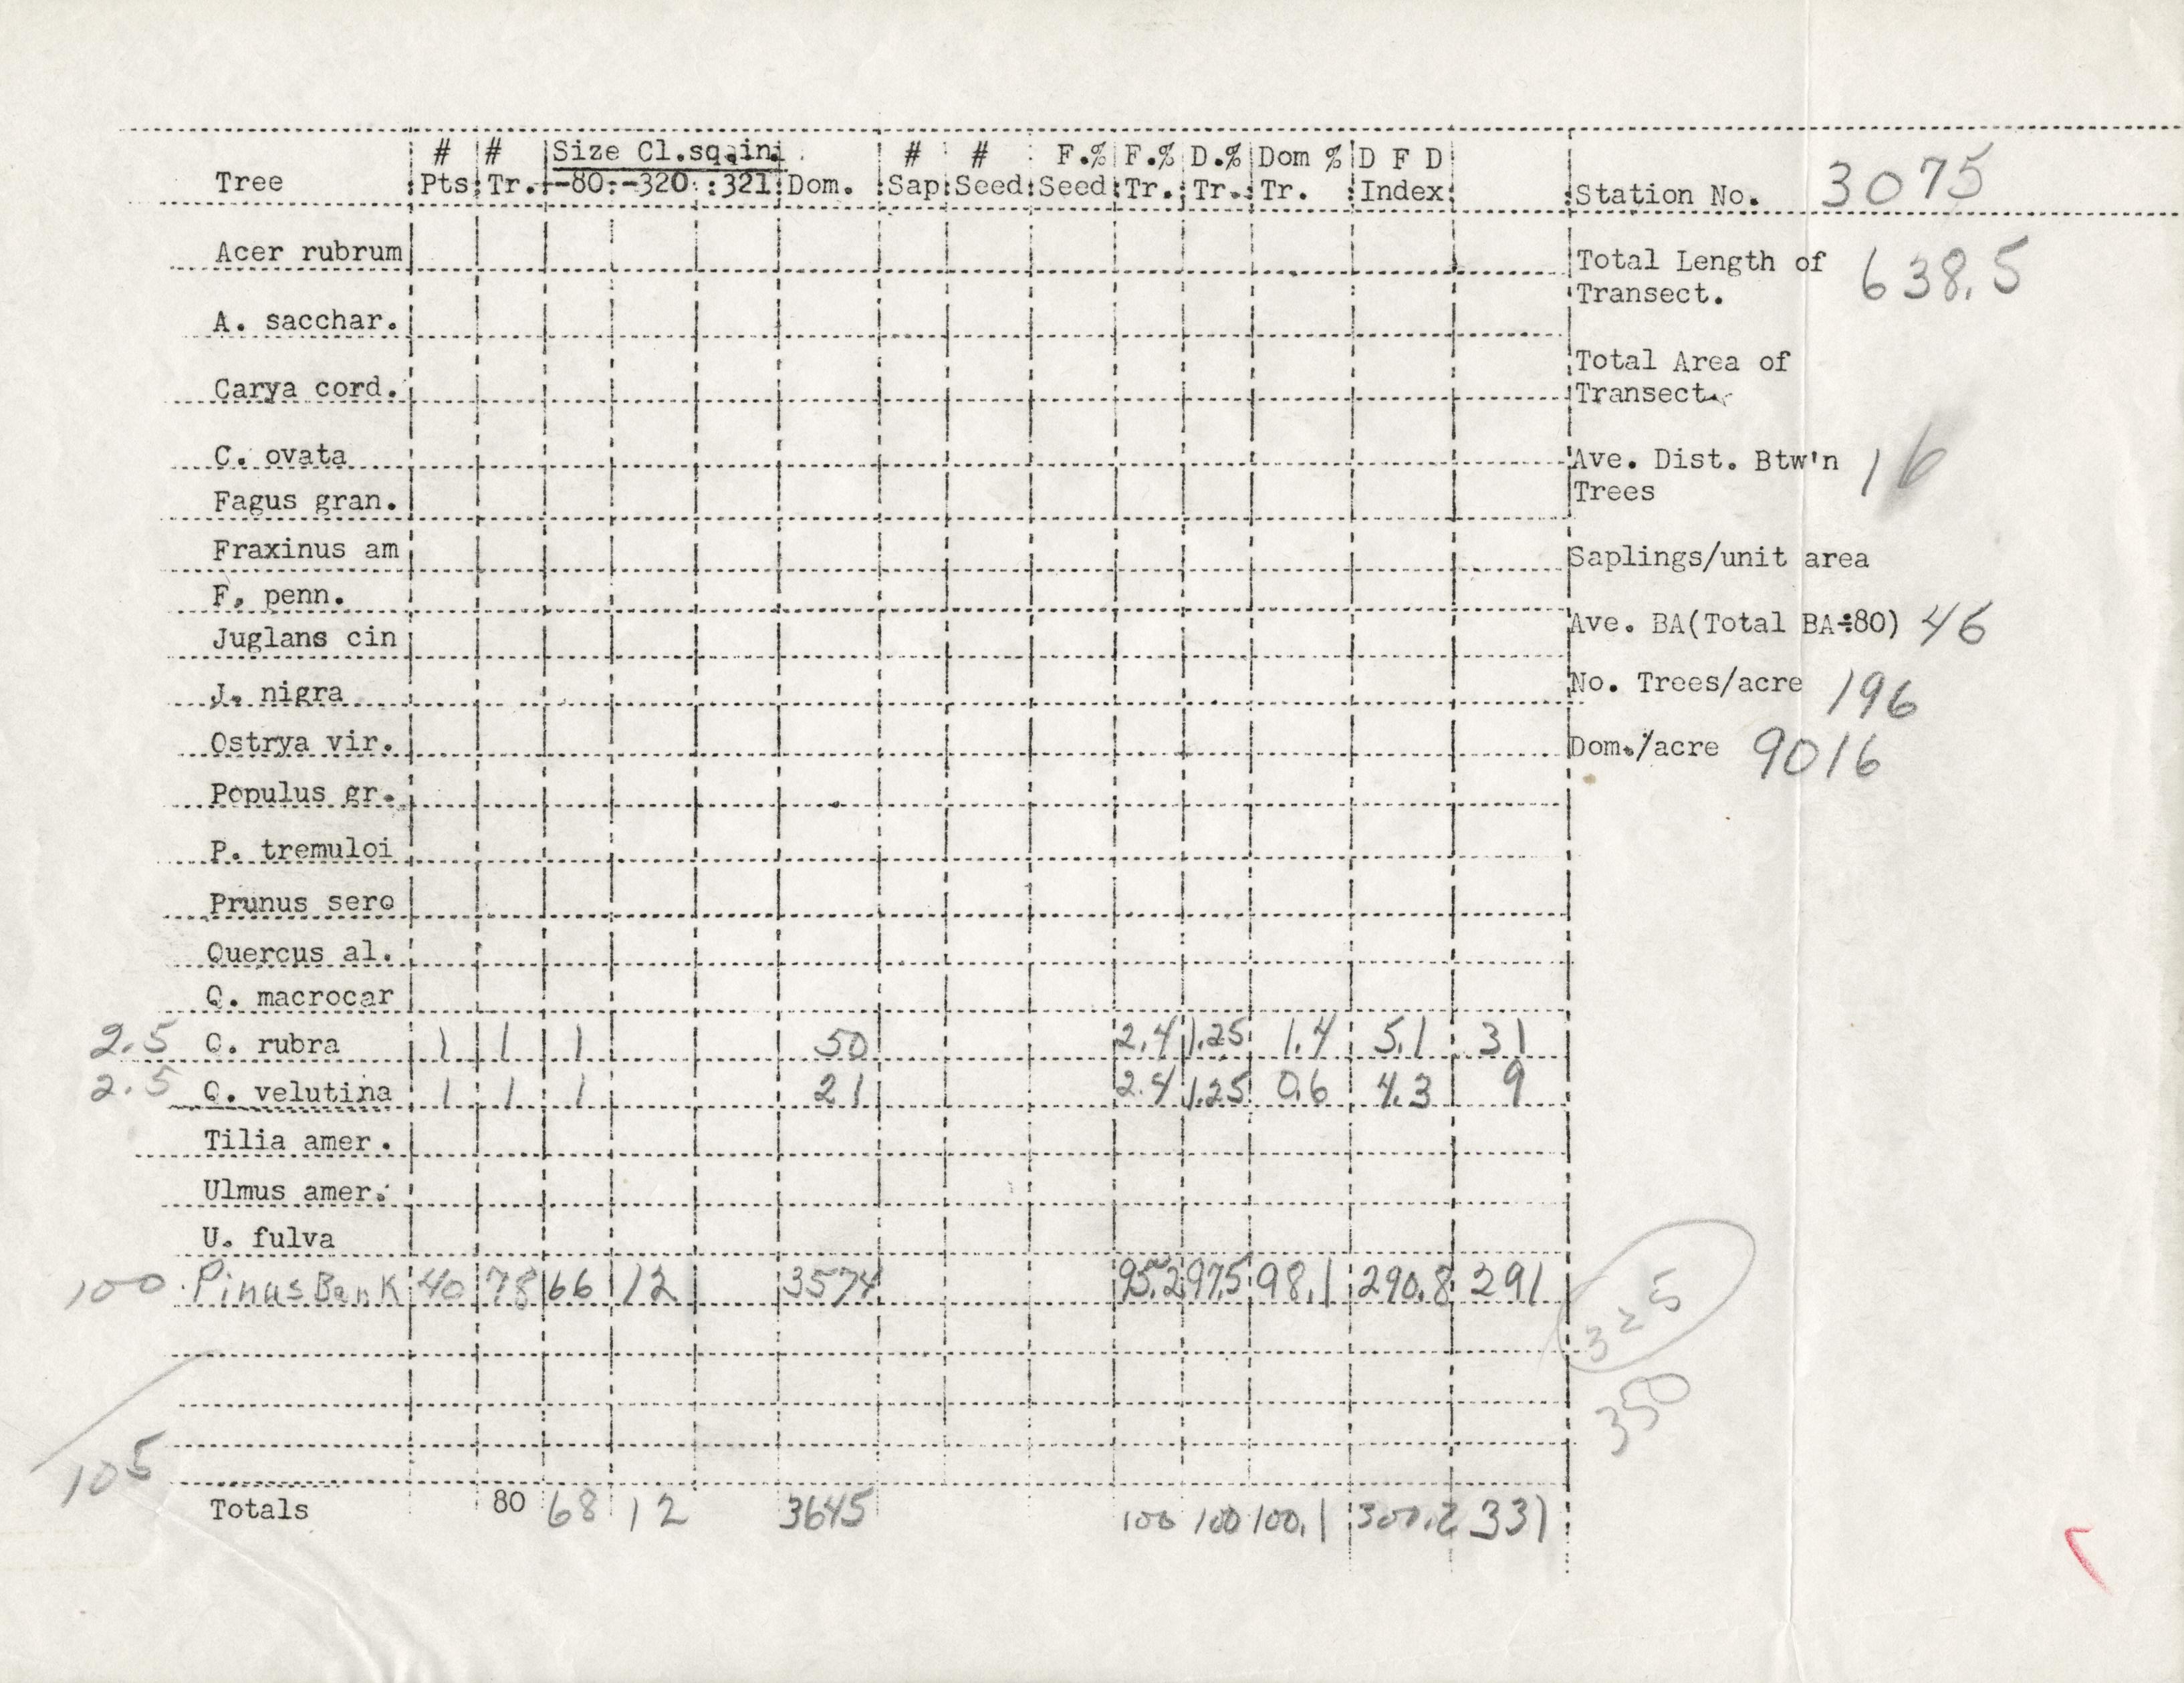 # # Size Cl.sq.in. # # F.% F.% D.% Dom % D F D
Tree Pts Tr. -80 -320 321 Dom. Sap Seed Seed Tr. Tr. Tr. Index Station No. 3075
Acer rubrum Total Length of Transect. 638.5
A. sacchar.
Total Area of Transect
Carya cord.
C. ovata Ave. Dist. Btw'n Trees 16
Fagus gran.
Fraxinus am Saplings/unit area
F. penn.
Juglans cin Ave. BA(Total BA÷80) 46
J. nigra No. Trees/acre 196
Ostrya vir. Dom./acre 9016
Populus gr.
P. tremuloi
Prunus sero
Quercus al.
Q. macrocar
2.5 Q. rubra 1 1 1 50 2.4 1.25 1.4 5.1 31
2.5 Q. velutina 1 1 1 21 2.4 1.25 0.6 4.3 9
Tilia amer.
Ulmus amer.
U. fulva
100 Pinus Bank 40 78 66 12 3574 95.2 97.5 98.1 290.8 291
325
350
105
Totals 80 68 12 3645 100 100 100.1 300.2 331